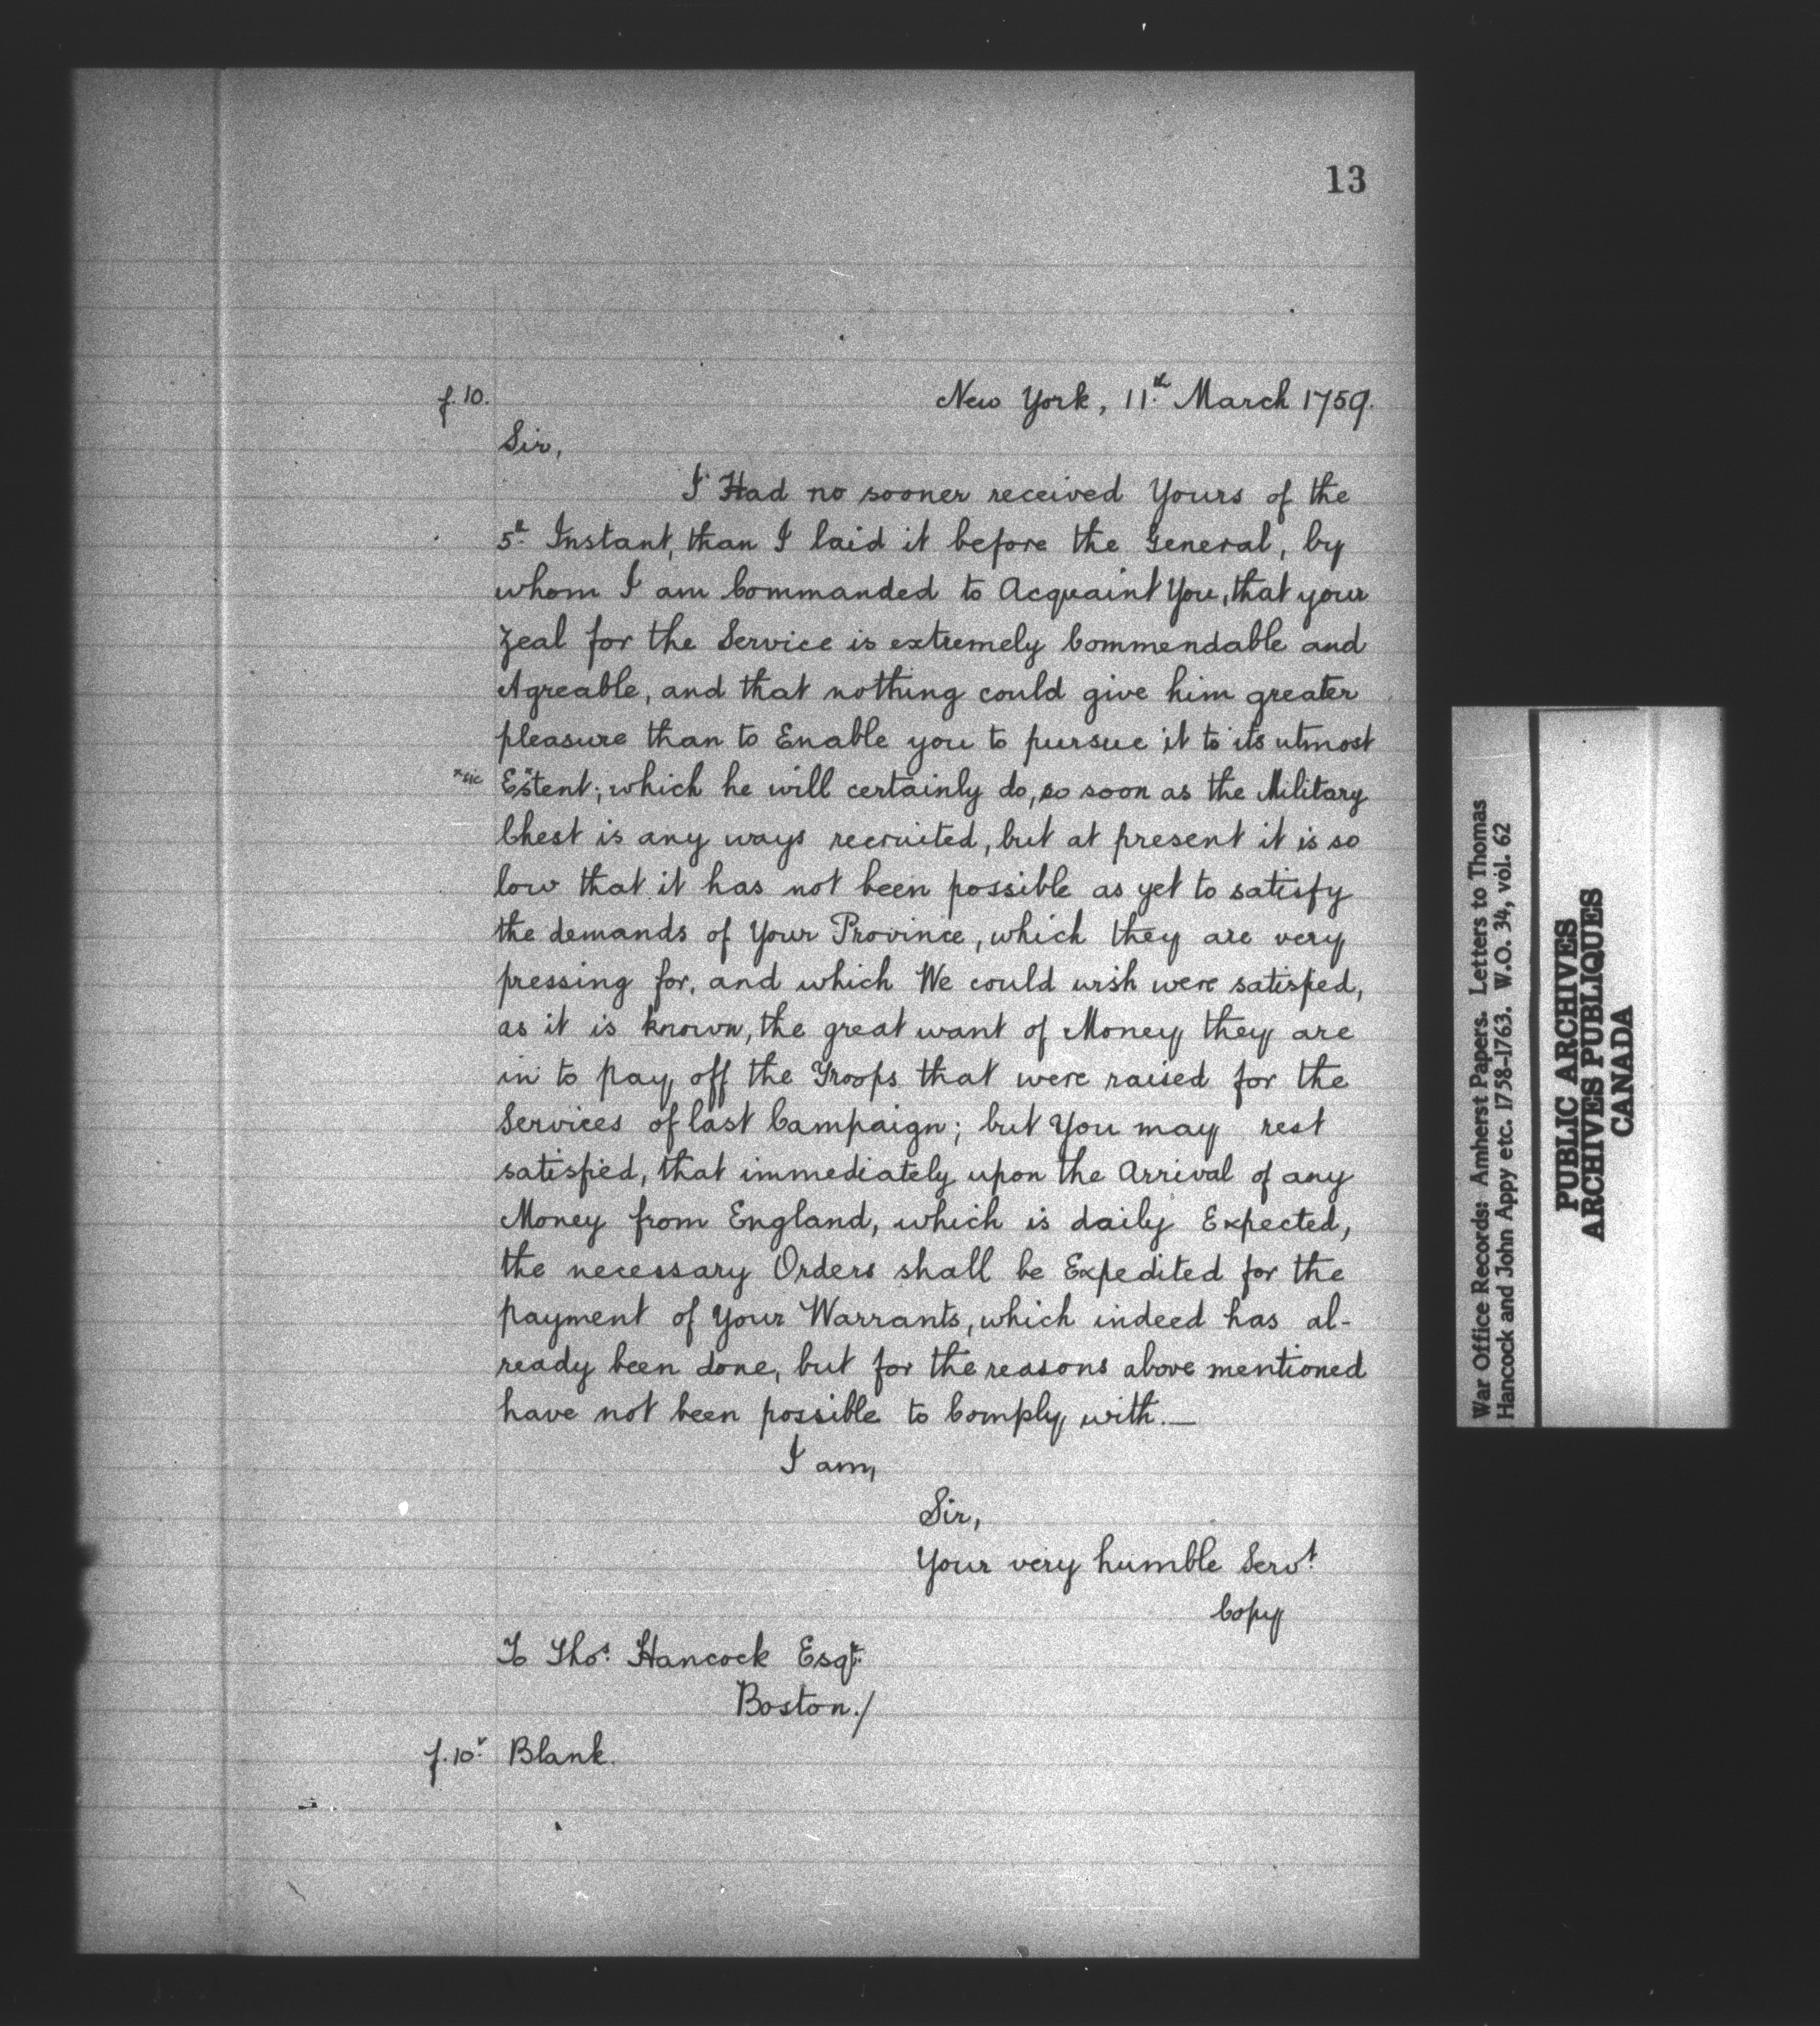 13
f. 10.
New York, 11th. March 1759.
Sir,
I Had no sooner received Yours of the
5th. Instant, than I laid it before the General, by
whom I am Commanded to Acquaint You, that your
Zeal for the Service is extremely Commendable and
Agreable, and that nothing could give him greater
pleasure than to Enable you to pursue it to its utmost
*sic Es*tent; which he will certainly do, so soon as the Military
Chest is any ways recruited, but at present it is so
low that it has not been possible as yet to satisfy
the demands of Your Province, which they are very
pressing for, and which We could wish were satisfied,
as it is known, the great want of Money they are
in to pay off the Troops that were raised for the
Services of last Campaign; but You may rest
satisfied, that immediately upon the Arrival of any
Money from England, which is daily Expected,
the necessary Orders shall be Expedited for the
payment of Your Warrants, which indeed has al-
ready been done, but for the reasons above mentioned
have not been possible to Comply with.—
I am,
Sir,
Your very humble Servt.
Copy
To Thos. Hancock Esqr.
Boston./
f. 10v. Blank.
War Office Records: Amherst Papers. Letters to Thomas
Hancock and John Appy etc. 1758-1763. W.O. 34, vol. 62
PUBLIC ARCHIVES
ARCHIVES PUBLIQUES
CANADA